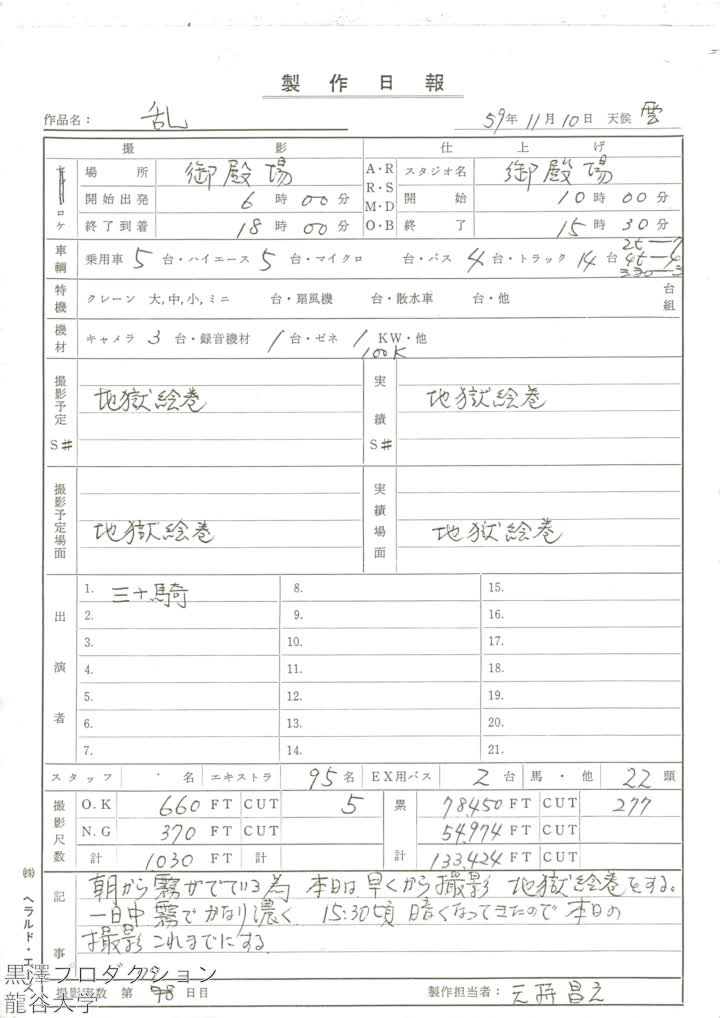 製作日報
作品名： 乱 59年11月10日 天候 雲
撮影 仕上げ
ロケ 場所 御殿場 A・R R・S M・D O・B スタジオ名 御殿場
開始出発 6時00分 開始 10時00分
終了到着 18時00分 終了 15時30分
車輌 乗用車 5台・ハイエース 5台・マイクロ 台・バス 4台・トラック 14台 2t-7 4t-4
特機 クレーン 大,中,小,ミニ 台・扇風機 台・散水車 台・他 台組
機材 キャメラ 3台・録音機材 1台・ゼネ 1 KW・他
100K
撮影予定 S# 地獄絵巻 実績 S# 地獄絵巻
撮影予定場面 地獄絵巻 実績場面 地獄絵巻
出演者
1. 三十騎 8. 15.
2. 9. 16.
3. 10. 17.
4. 11. 18.
5. 12. 19.
6. 13. 20.
7. 14. 21.
スタッフ 名 エキストラ 95名 EX用バス 2台 馬・他 22頭
撮影尺数 O.K 660 FT CUT 5 累計 78450 FT CUT 277
N.G 370 FT CUT 54,974 FT CUT
計 1030 FT 計 133,424 FT CUT
記事 朝から霧がでている為 本日は早くから撮影 地獄絵巻をする。
一日中霧でかなり濃く 15:30頃 暗くなってきたので本日の
撮影これまでにする
撮影実数 第 98 日目 製作担当者：
㈱ヘラルド・エース
黒澤プロダクション
龍谷大学